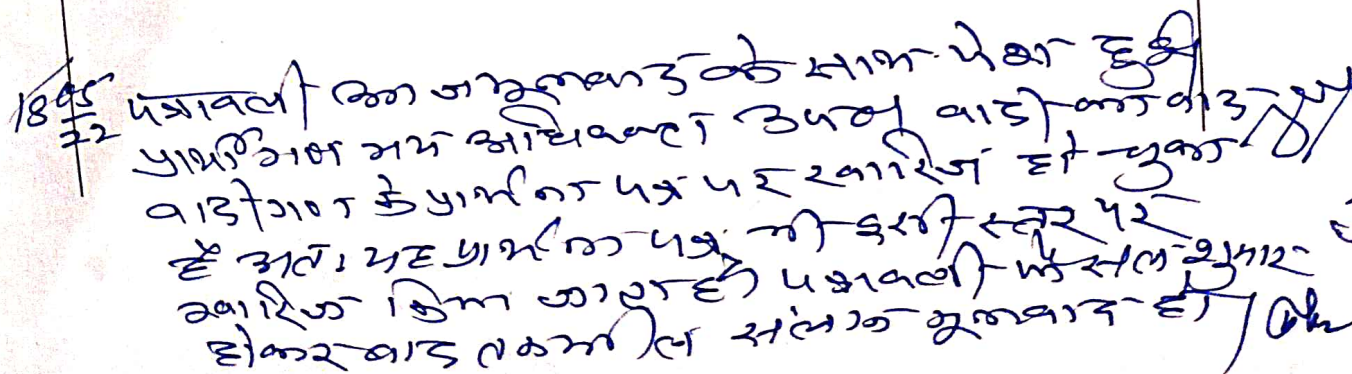 18/05/22 पत्रावली आज मूलवाद के साथ पेश हुई
प्रार्थीगण मय अधिवक्ता उप० वादी का वाद
वादीगण के प्रार्थना पत्र पर खारिज हो चुका
है अतः यह प्रार्थना पत्र भी इसी स्तर पर
खारिज किया जाता है पत्रावली फैसल शुमार
होकर बाद तकमील संलग्न मूलवाद हो